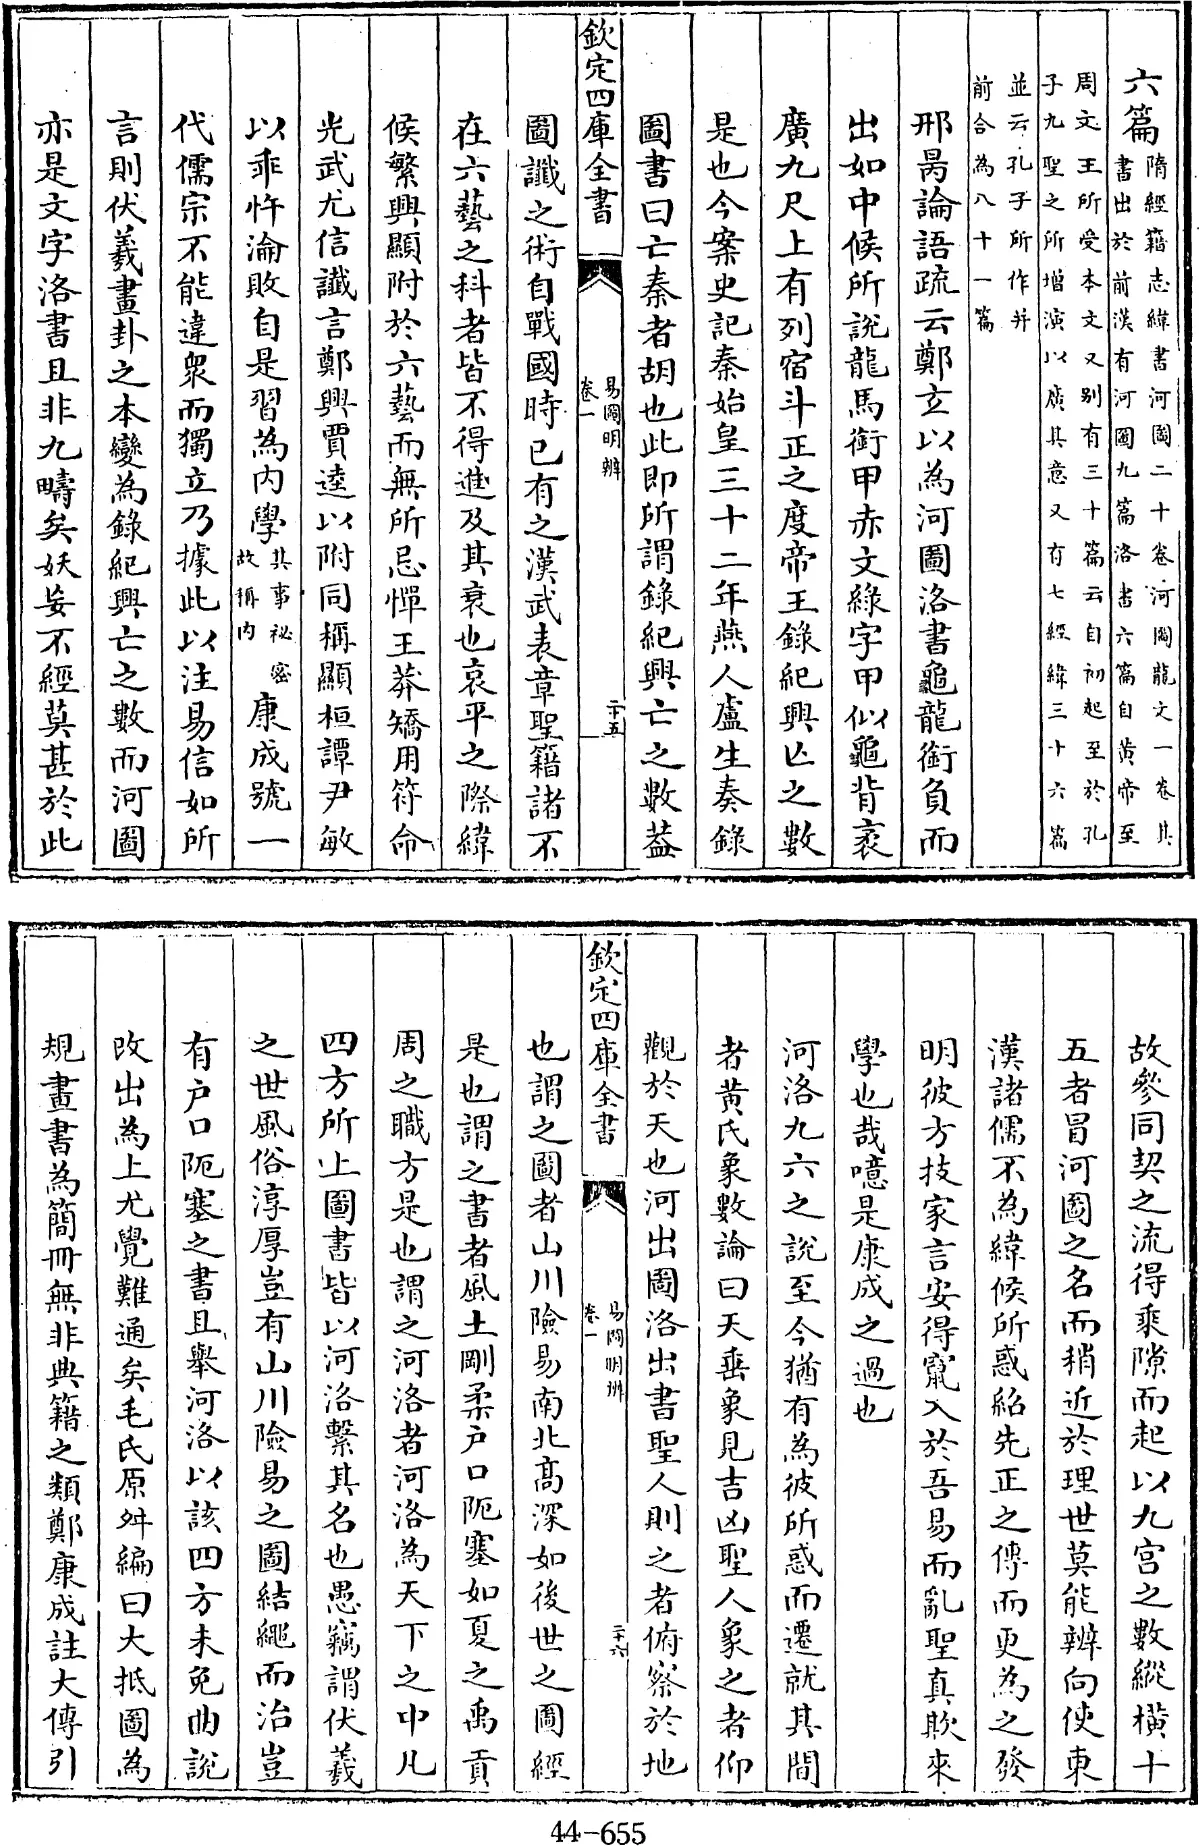 六篇隋經籍志緯書河圖二十卷河圖龍文一卷其書出於前漢有河圖九篇洛書六篇自黃帝至
周文王所受本文又别有三十篇云自初起至於孔子九聖之所增演以廣其意又有七經緯三十六篇
並云孔子所作并前合為八十一篇
邢昺論語疏云鄭玄以為河圖洛書龜龍銜負而
出如中候所說龍馬銜甲赤文綠字甲似龜背袤
廣九尺上有列宿斗正之度帝王錄紀興亡之數
是也今案史記秦始皇三十二年燕人盧生奏錄
圖書曰亡秦者胡也此即所謂錄紀興亡之數葢
欽定四庫全書
易圖明辨
卷一
二十五
圖讖之術自戰國時已有之漢武表章聖籍諸不
在六藝之科者皆不得進及其衰也哀平之際緯
候繁興顯附於六藝而無所忌憚王莽矯用符命
光武尤信讖言鄭興賈逵以附同稱顯桓譚尹敏
以乖忤淪敗自是習為内學其事祕密故稱内康成號一
代儒宗不能違衆而獨立乃據此以注易信如所
言則伏羲畫卦之本變為錄紀興亡之數而河圖
亦是文字洛書且非九疇矣妖妄不經莫甚於此
故參同契之流得乘隙而起以九宮之數縱橫十
五者冒河圖之名而稍近於理世莫能辨向使東
漢諸儒不為緯候所惑紹先正之傳而更為之發
明彼方技家言安得竄入於吾易而亂聖真歟來
學也哉噫是康成之過也
河洛九六之說至今猶有為彼所惑而遷就其間
者黄氏象數論曰天垂象見吉凶聖人象之者仰
觀於天也河出圖洛出書聖人則之者俯察於地
欽定四庫全書
易圖明辨
卷一
二十六
也謂之圖者山川險易南北高深如後世之圖經
是也謂之書者風土剛柔户口阨塞如夏之禹貢
周之職方是也謂之河洛者河洛為天下之中凡
四方所上圖書皆以河洛繫其名也愚竊謂伏羲
之世風俗淳厚豈有山川險易之圖結繩而治豈
有户口阨塞之書且舉河洛以該四方未免曲說
改出為上尤覺難通矣毛氏原舛編曰大抵圖為
規畫書為簡冊無非典籍之類鄭康成註大傳引
44-655